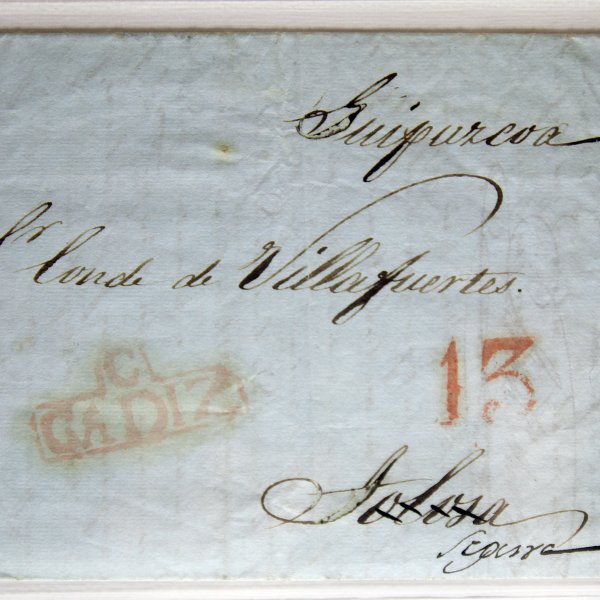 Guipuzcoa
Sr Conde de Villafuertes.
C
CADIZ
13
Tolosa